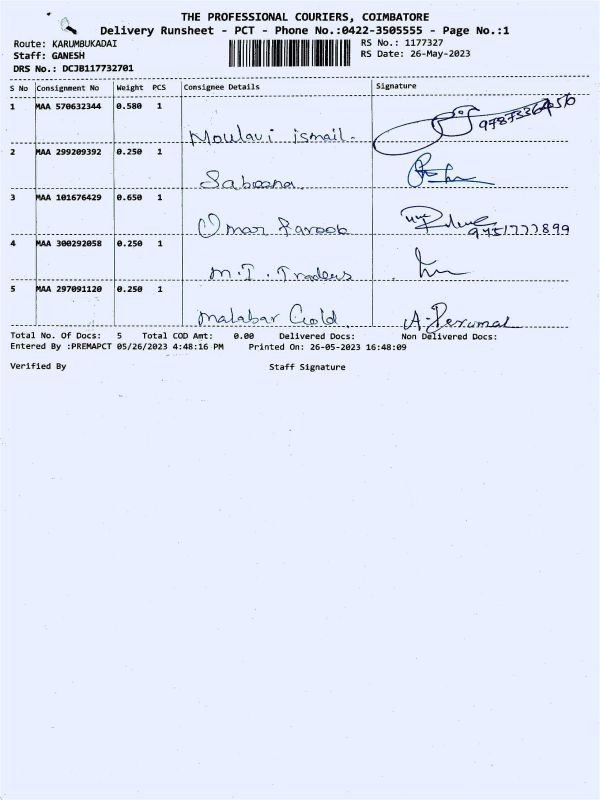 THE PROFESSIONAL COURIERS, COIMBATORE
Delivery Runsheet - PCT - Phone No.:0422-3505555 - Page No.:1
Route: KARUMBUKADAI RS No.: 1177327
Staff: GANESH RS Date: 26-May-2023
DRS No.: DCJB117732701
S No Consignment No Weight PCS Consignee Details Signature
1 MAA 570632344 0.580 1
Moulavi ismail.
2 MAA 299209392 0.250 1
Saboona
3 MAA 101676429 0.650 1
Omar Farook
9751777899
4 MAA 300292058 0.250 1
M.I. Traders
5 MAA 297091120 0.250 1
Malabar Gold A. Perumal
Total No. Of Docs: 5 Total COD Amt: 0.00 Delivered Docs: Non Delivered Docs:
Entered By :PREMAPCT 05/26/2023 4:48:16 PM Printed On: 26-05-2023 16:48:09
Verified By Staff Signature